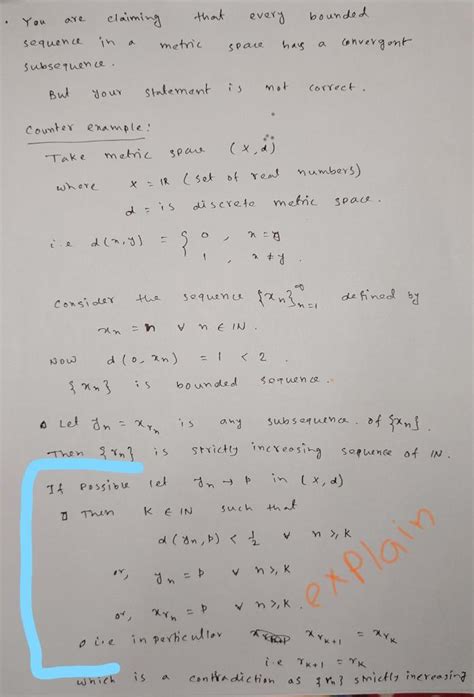 . You are claiming that every bounded
sequence in a metric space has a convergent
subsequence.
But your statement is not correct.
Counter example:
Take metric space (X, d)
where X = IR (set of real numbers)
d = is discrete metric space.
i.e d(x,y) = { 0 , x = y
1 , x ≠ y.
Consider the sequence {xn}∞n=1 defined by
xn = n ∀ n ∈ IN.
Now d(0, xn) = 1 < 2.
{xn} is bounded sequence.
Let yn = xrn is any subsequence of {xn}.
Then {rn} is strictly increasing sequence of IN.
If possible let yn → p in (X, d)
Then K ∈ IN such that
d(yn, p) < 1/2 ∀ n ≥ K
or, yn = p ∀ n ≥ K
or, xrn = p ∀ n ≥ K.
explain
i.e in perticullar xrK+1 = xrK
i.e rK+1 = rK
which is a contradiction as {rn} strictly increasing